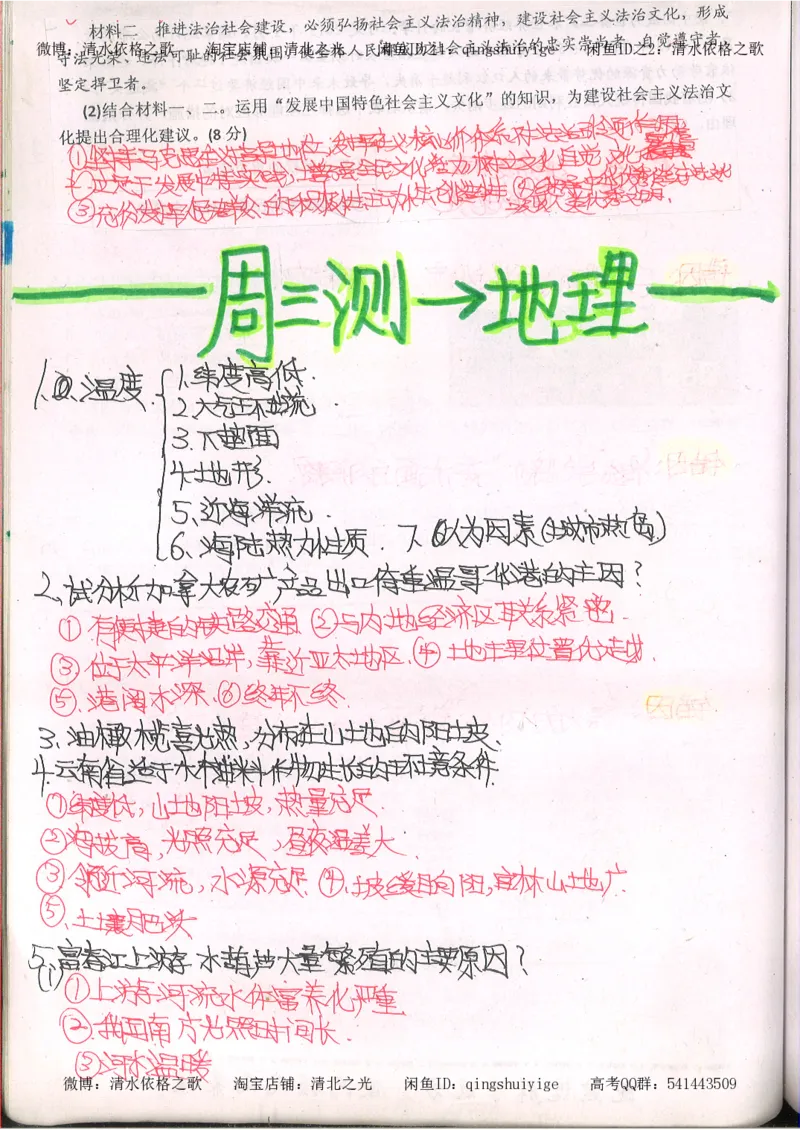 材料二 推进法治社会建设，必须弘扬社会主义法治精神，建设社会主义法治文化，形成
微博：清水依格之歌 淘宝店铺：清北之光 闲鱼ID之1：qingshuiyige 闲鱼ID之2：清水依格之歌
守法光荣、违法可耻的社会氛围，使全体人民都成为社会主义法治的忠实崇尚者、自觉遵守者、
坚定捍卫者。
(2)结合材料一、二。运用“发展中国特色社会主义文化”的知识，为建设社会主义法治文
化提出合理化建议。(8 分)
①坚持马克思主义指导地位，发挥社会主义核心价值体系对法治
②立足于发展中特实践，
③充分发挥人民群众的积极性主动性创造性
周三测→地理
1.温度 1.纬度高低.
2.大气环流
3.下垫面
4.地形.
5.近海洋流.
6.海陆热力性质. 7.人为因素(城市热岛)
2.试分析加拿大农矿产品出口倚重温哥华港的主因？
①有便捷的铁路交通 ②与内地经济区联系紧密.
③.位于太平洋沿岸，靠近亚太地区. ④土地车里位置优越.
⑤.港阔水深. ⑥终年不冻.
3.油橄榄喜光热，分布在山地的阳坡.
4.云南省适于水林作物生长的环境条件.
①纬度低，山地阳坡，热量充足.
②海拔高，光照充足，昼夜温差大.
③领近河流，水源充足 ④.坡缓向阳，宜林山地广.
⑤.土壤肥沃
5.富春江上游水葫芦大量繁殖的主要原因？
(1)
①上游河流水体富养化严重
②.我国南方光照时间长.
③河水温暖
微博：清水依格之歌 淘宝店铺：清北之光 闲鱼ID：qingshuiyige 高考QQ群：541443509